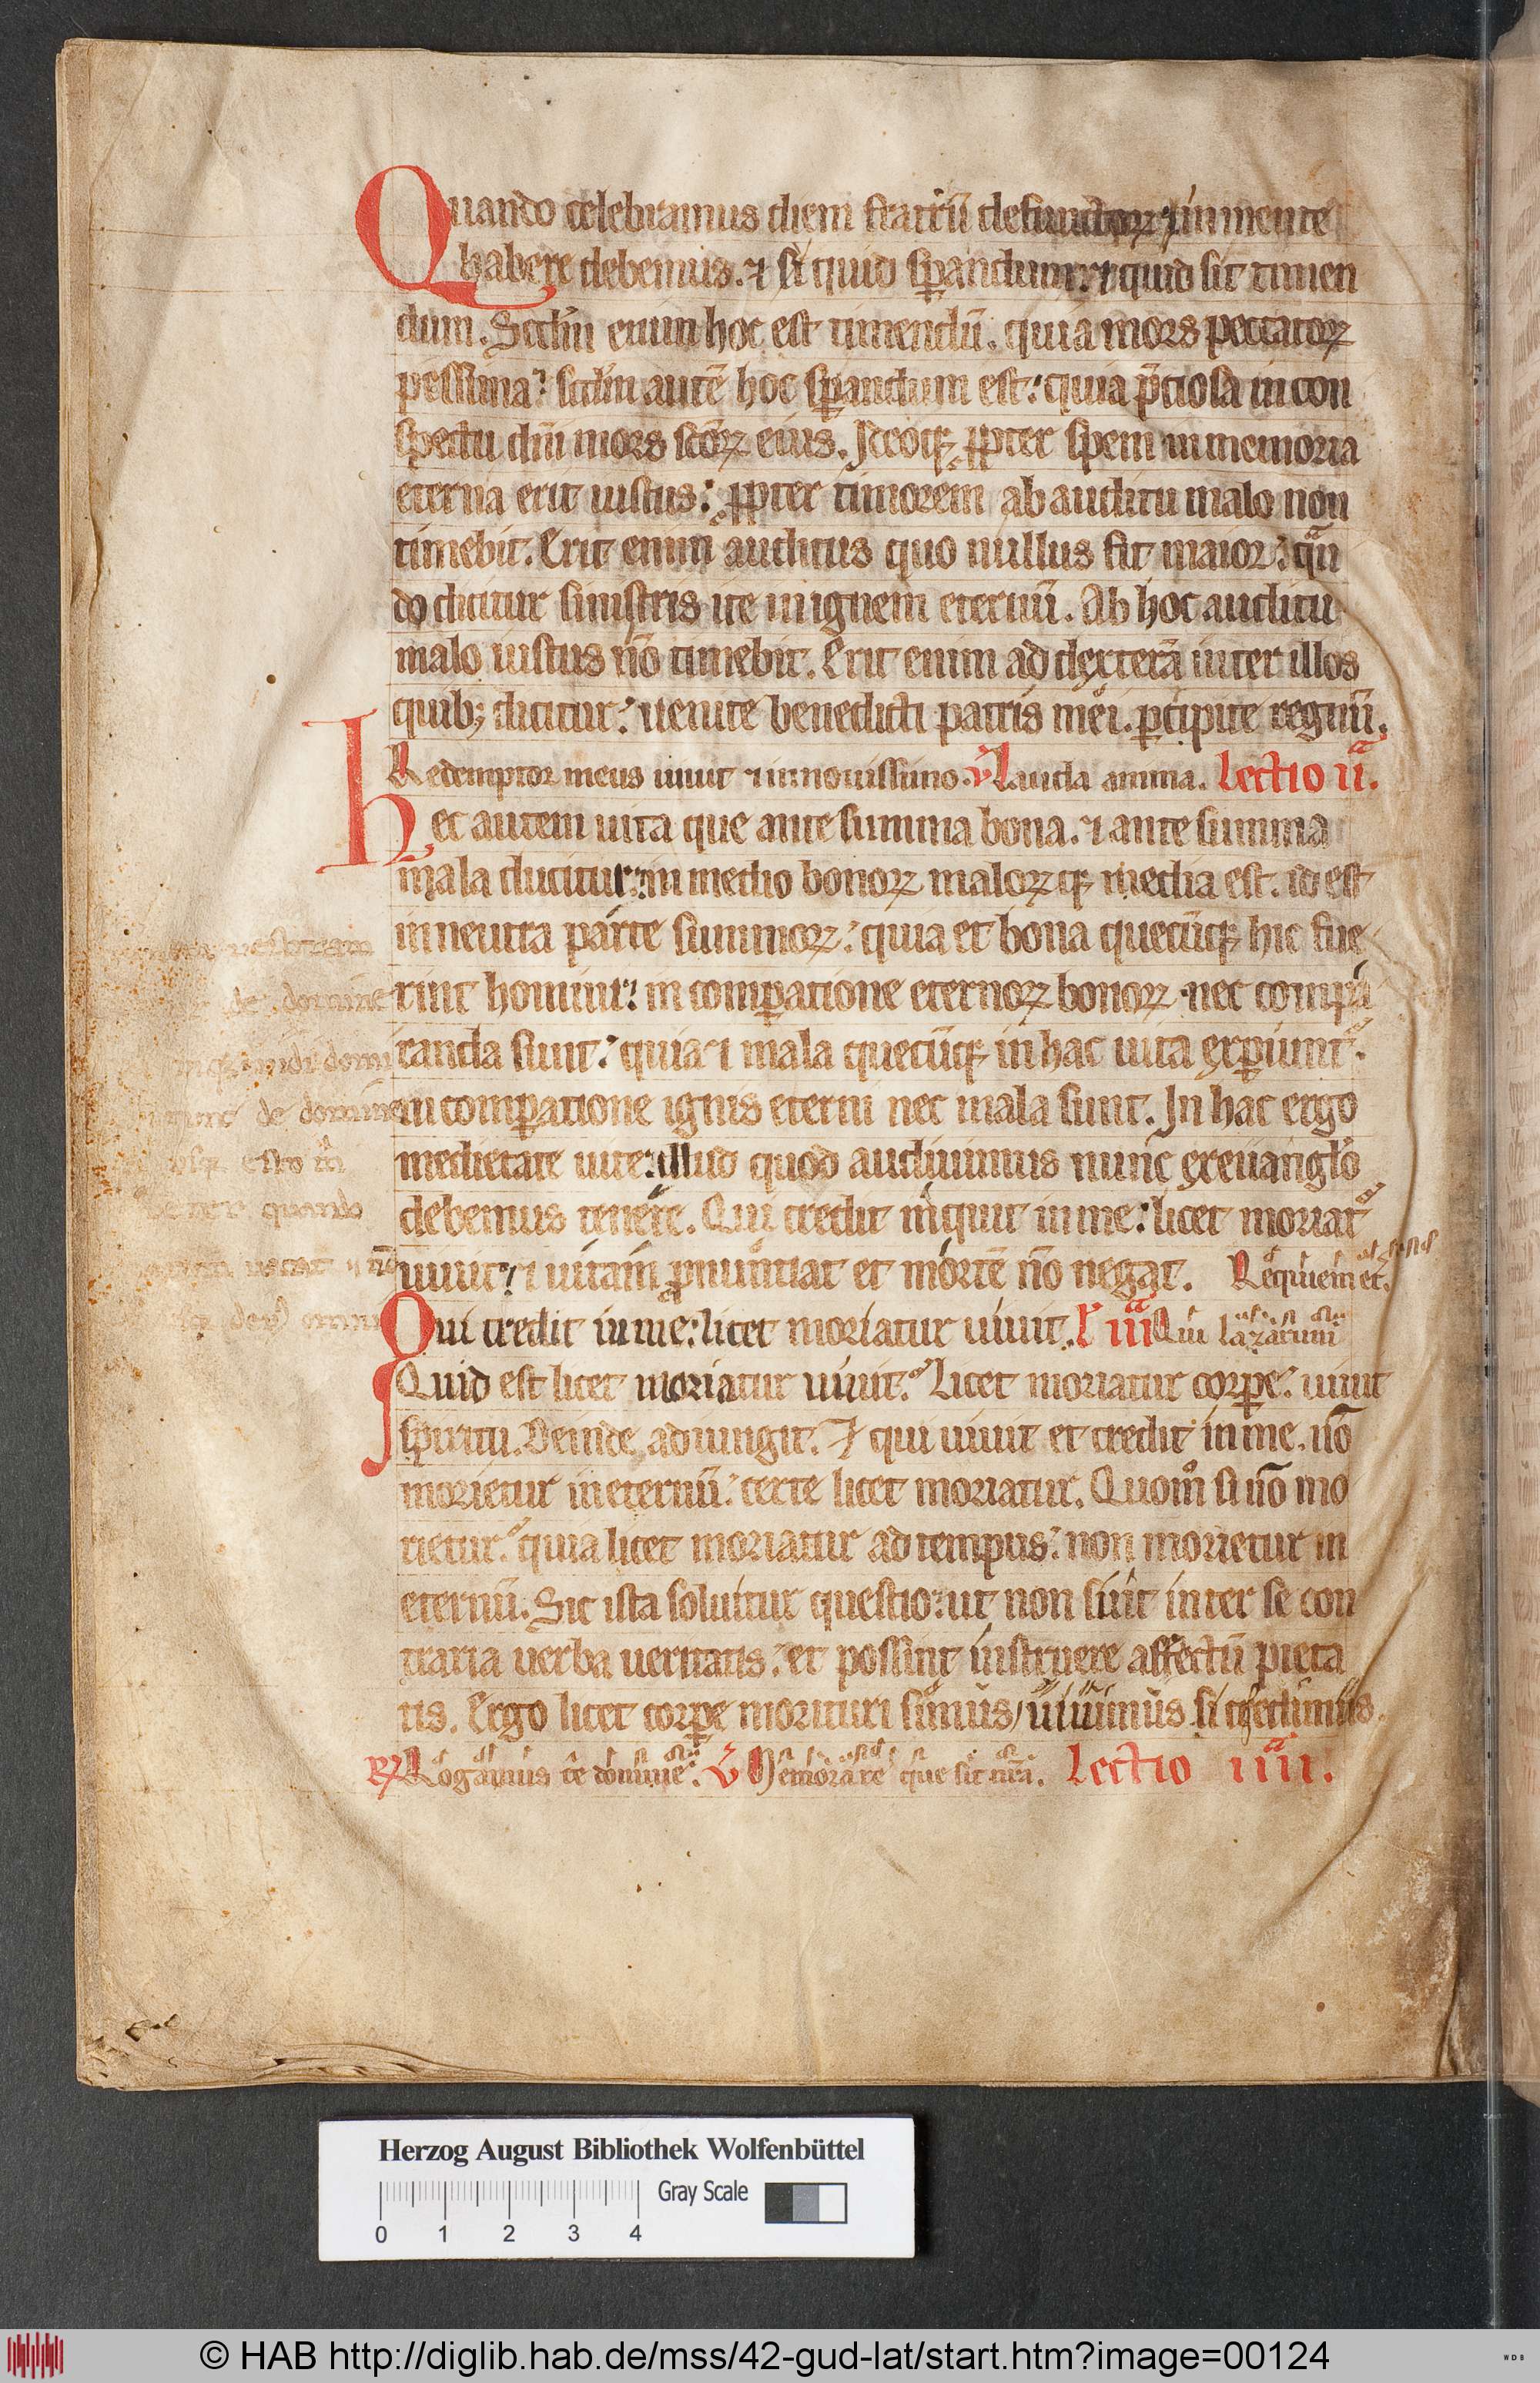 Quando celebramus diem fratrũ defunctoꝝ ⁊ in mente
habere debemus. ⁊ si quid sꝑandum. ⁊ quid sit timen
dum. Scdm enim hoc est timendũ. quia mors peccatoꝝ
pessima? scdm autẽ hoc sꝑandum est: quia p̃ciosa in con
spectu dñi mors scõꝝ eius. Ideoqꝫ ꝓpter spem in memoria
eterna erit iustus: ꝓpter timorem ab auditu malo non
timebit. Erit enim auditus quo nullus fit maior: q̃n
do dicitur sinistris ite in ignem eternũ. Ab hoc auditu
malo iustus nõ timebit. Erit enim ad dexterã inter illos
quibꝫ dicitur: uenite benedicti patris mei. ꝑcipite regnũ.
Redemptor meus uiuit ⁊ in nouissimo. ℣ Lauda anima. Lectio ii.ᵃ
Hec autem uita que ante summa bona. ⁊ ante summa
mala ducitur: in medio bonoꝝ maloꝝqꝫ media est. id est
in neutra parte summoꝝ: quia et bona quecũqꝫ hic fue
rint homini: in comꝑatione eternoꝝ bonoꝝ nec compa
randa sunt: quia ⁊ mala quecũqꝫ in hac uita exꝑiunt᷑.
in comꝑatione ignis eterni nec mala sunt. In hac ergo
medietate uite: illud quod audiuimus nunc ex euangło
debemus tenere. Qui credit inquit in me: licet moriat᷑
uiuit: ⁊ uitam ꝓnuntiat et mortẽ nõ negat. Requiem et.
Qui credit in me: licet moriatur uiuit. Ł iii.ᵃ Qui lazarum
Quid est licet moriatur uiuit? Licet moriatur corꝑe: uiuit
spiritu. Deinde adiungit. ⁊ qui uiuit et credit in me. nõ
morietur in eternũ: certe licet moriatur. Quomͦ si nõ mo
rietur? quia licet moriatur ad tempus: non morietur in
eternũ. Sic ista soluitur questio: ut non sint inter se con
traria uerba ueritatis: et possint instruere affectũ pieta
tis. Ergo licet corꝑe morituri simus, uiuimus si credimus.
℟ Rogamus te domine. ℣ Memorare que sit mͣ. Lectio iiii.ᵃ
de domine
de domine
quando
Herzog August Bibliothek Wolfenbüttel
Gray Scale
0 1 2 3 4
© HAB http://diglib.hab.de/mss/42-gud-lat/start.htm?image=00124
WDB